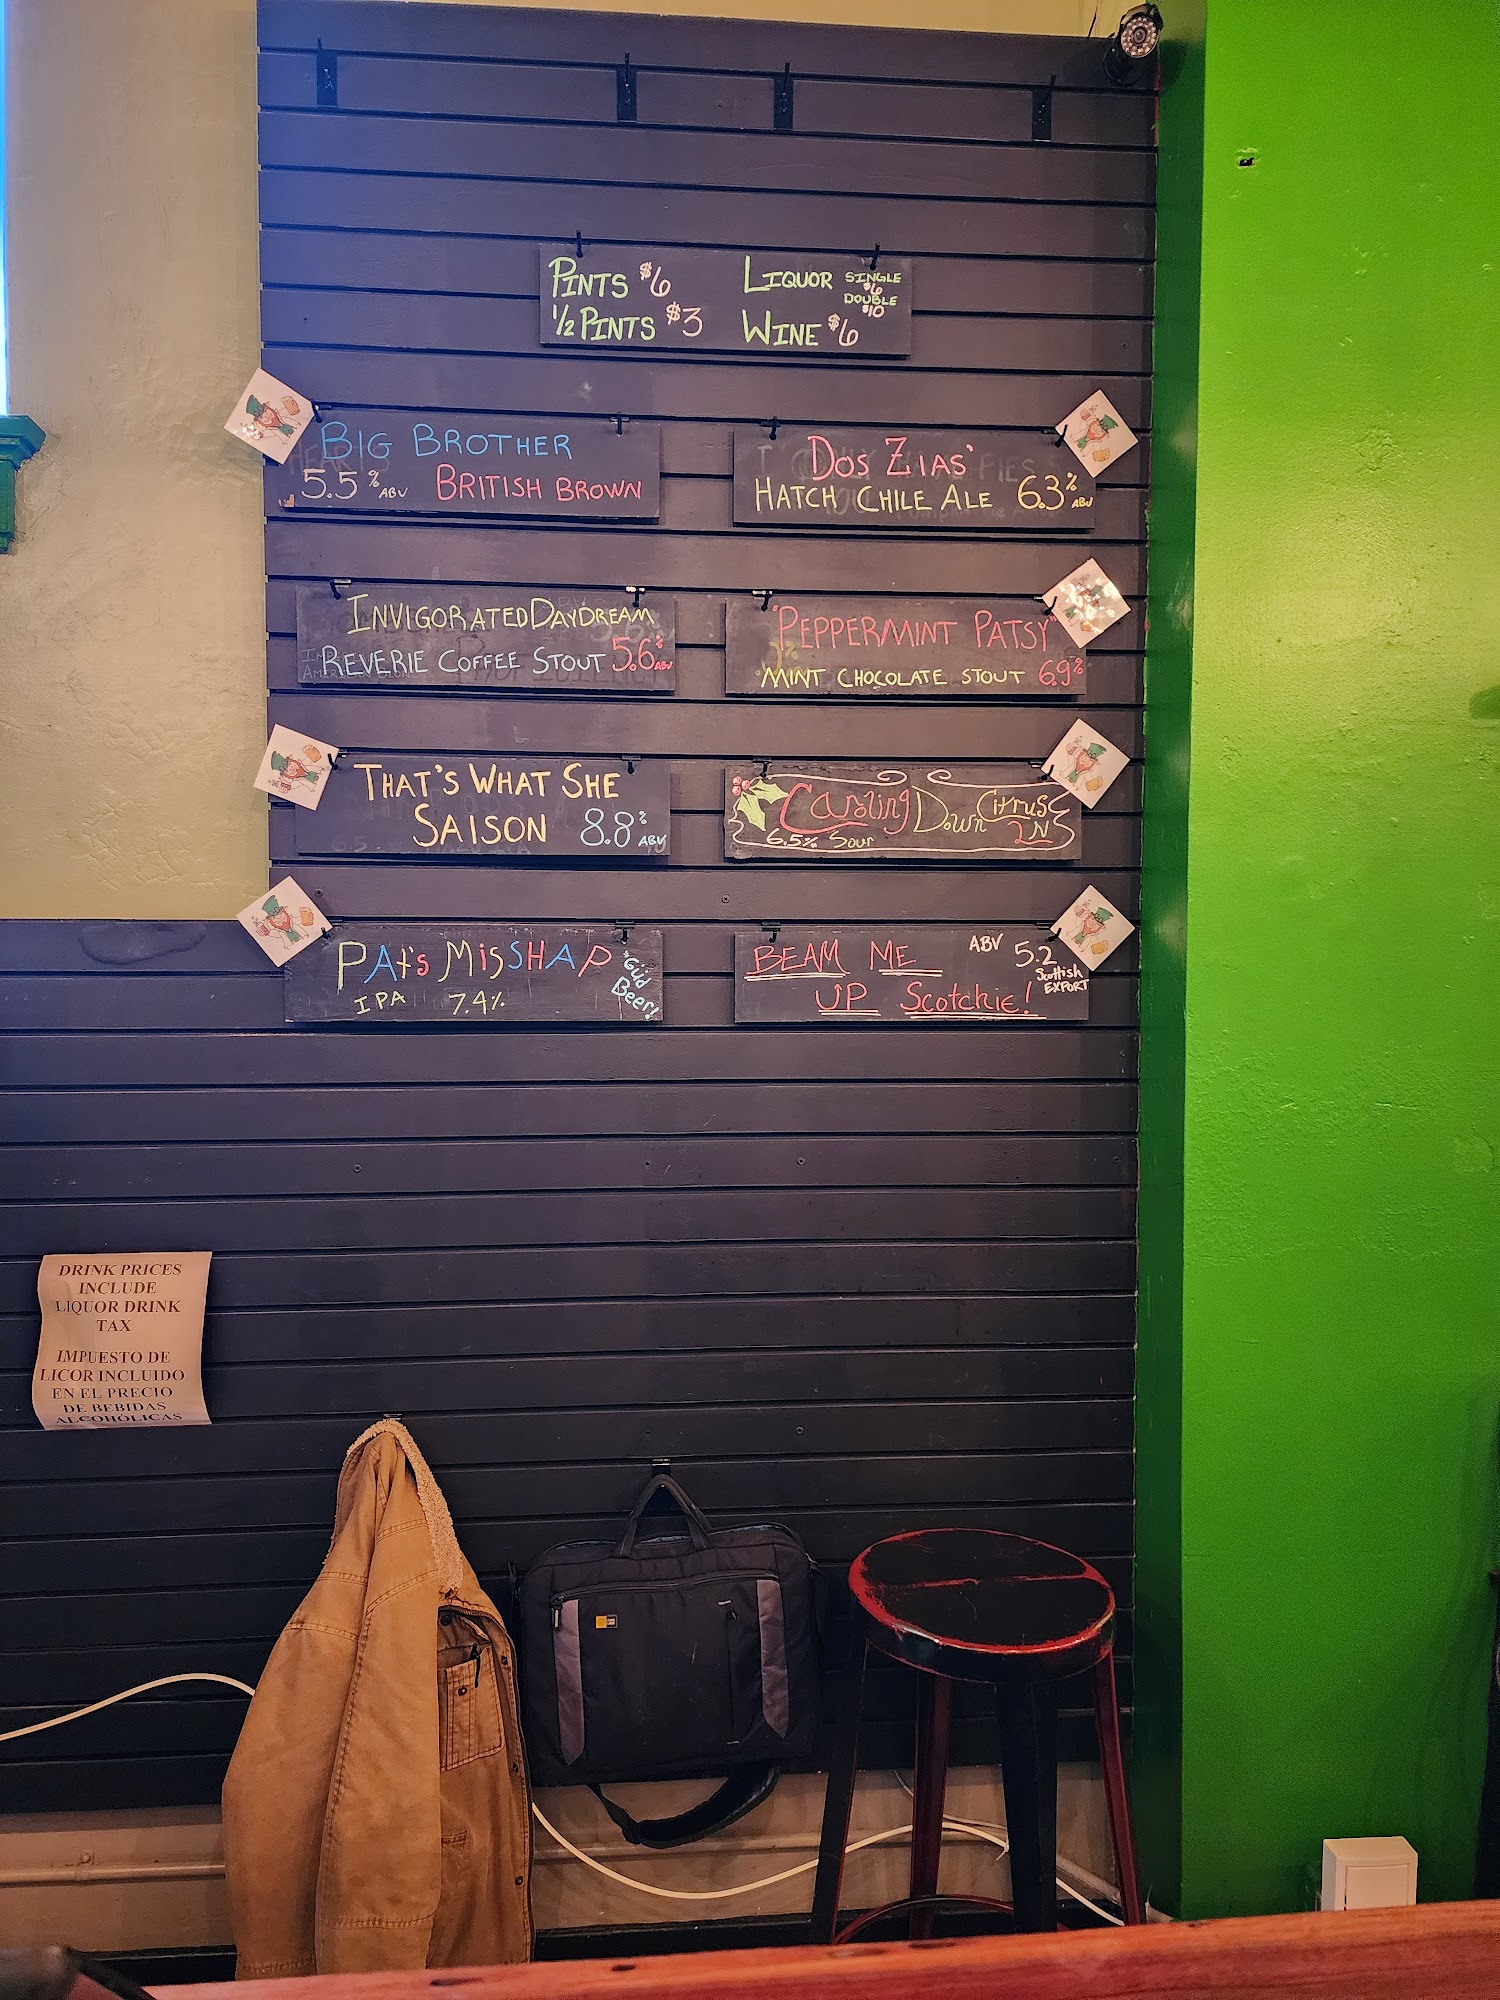 PINTS $6
1/2 PINTS $3
LIQUOR SINGLE $6
DOUBLE $10
WINE $6
BIG BROTHER
5.5% ABV BRITISH BROWN
DOS ZIAS'
HATCH CHILE ALE 6.3% ABV
INVIGORATED DAYDREAM
REVERIE COFFEE STOUT 5.6% ABV
"PEPPERMINT PATSY"
MINT CHOCOLATE STOUT 6.9%
THAT'S WHAT SHE
SAISON 8.8% ABV
Caroling Down Citrus
LN
6.5% Sour
PAt'S MiSSHAP
IPA 7.4%
Güd
Beer!
BEAM ME ABV 5.2
UP Scotchie! Scottish
EXPORT
DRINK PRICES
INCLUDE
LIQUOR DRINK
TAX
IMPUESTO DE
LICOR INCLUIDO
EN EL PRECIO
DE BEBIDAS
ALCOHÓLICAS